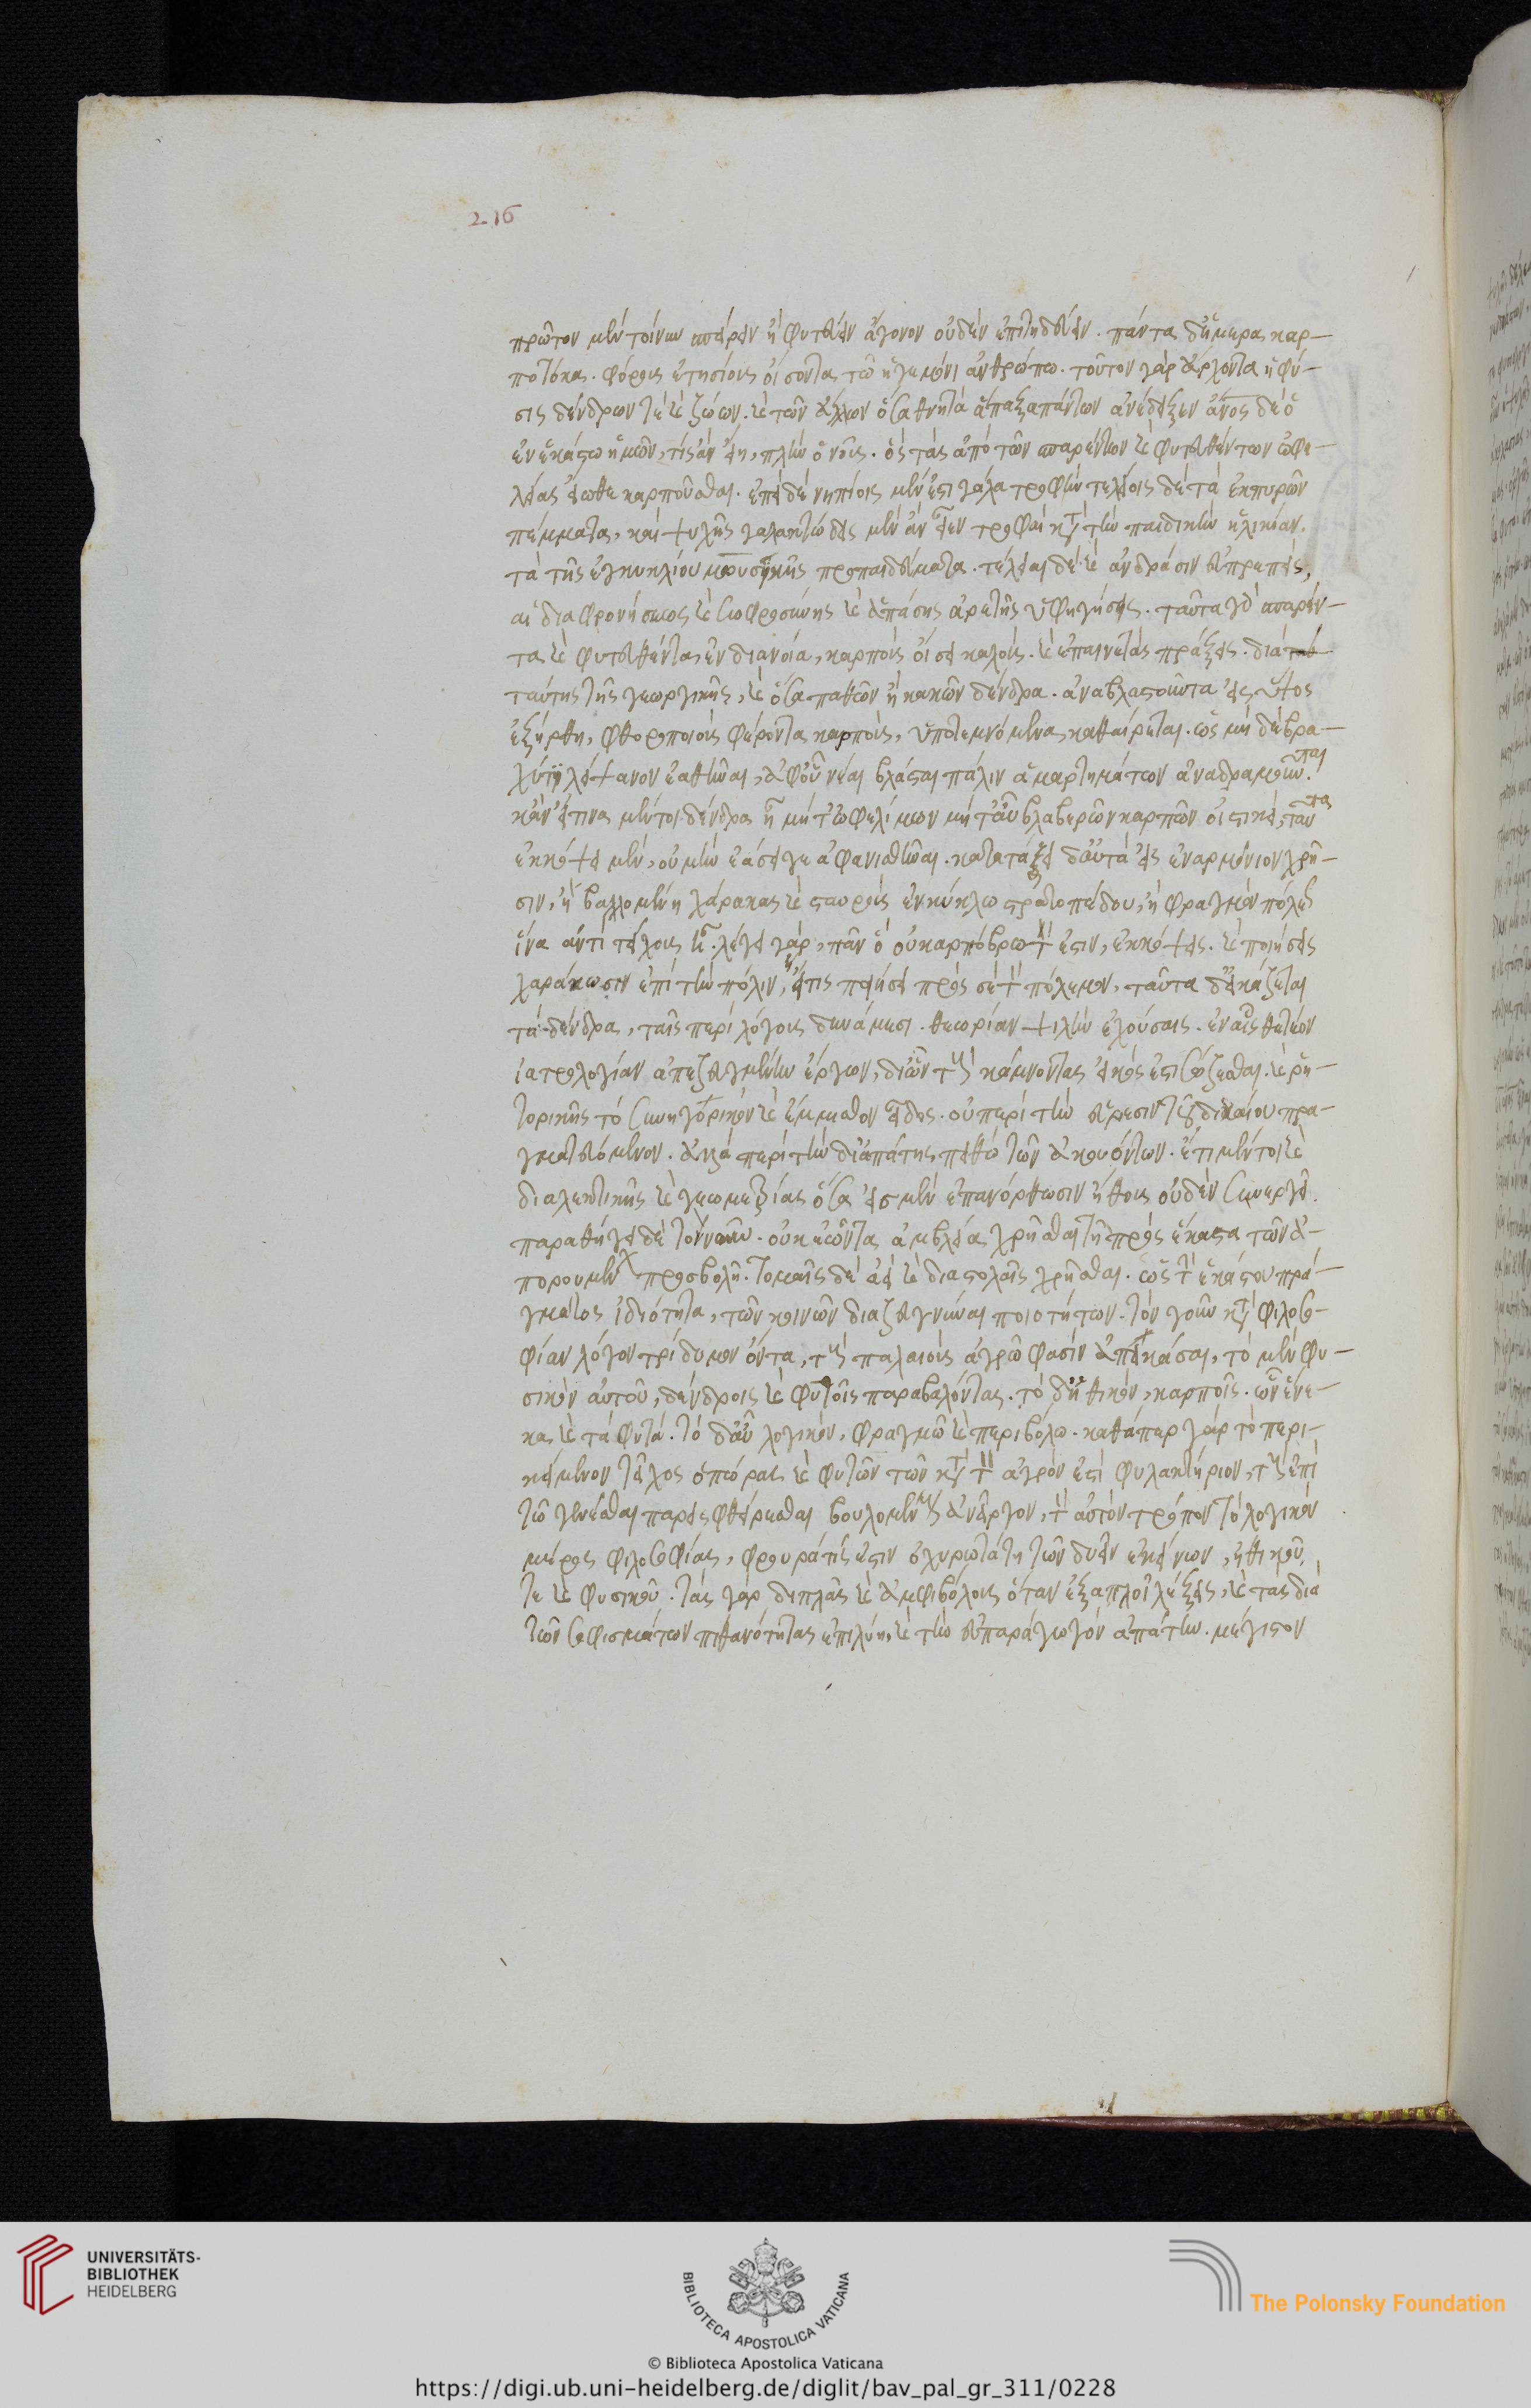 216
πρῶτον μὲν τοίνυν σπείρειν ἢ φυτεύειν ἄγονον οὐδὲν ἐπιτηδεύειν. πάντα δ' ἥμερα καρ-
ποτόκα. φόρους ἐτησίους οἴσοντα τῶ ἡγεμόνι ἀνθρώπω. τοῦτον γὰρ ἄρχοντα ἡ φύ-
σις δένδρων τὲ καὶ ζώων. καὶ τῶν ἄλλων ὅσα θνητὰ ἁπαξαπάντων ἀνέδειξεν ἄνος δὲ ὁ
ἐν ἑκάστω ἡμῶν, τίς ἂν εἴη, πλὴν ὁ νοῦς. ὃς τὰς ἀπὸ τῶν σπαρέντων καὶ φυτευθέντων ὠφε-
λείας εἴωθε καρποῦσθαι. ἐπεὶ δὲ νηπίοις μὲν ἐστι γάλα τροφὴν τελείοις δὲ τὰ ἐκπυρῶν
πέμματα, καὶ ψυχῆς γαλακτώδεις μὲν ἂν εἶεν τροφαὶ κατὰ τὴν παιδικὴν ἡλικίαν.
τὰ τῆς ἐγκυκλίου μουσικῆς προπαιδεύματα. τέλειαι δὲ καὶ ἀνδράσιν εὐπρεπεῖς,
αἱ διαφρονήσεως καὶ σωφροσύνης καὶ ἁπάσης ἀρετῆς ὑφηγήσεις. ταῦτα γὰρ σπαρέν-
τα καὶ φυτευθέντα, ἐν διανοία, καρποὺς οἴσει καλοὺς. καὶ ἐπαινετὰς πράξεις. διὰ
ταύτης τῆς γεωργικῆς, καὶ ὅσα παθῶν ἢ κακιῶν δένδρα. ἀναβλαστοῦντα εἰς ὕψος
ἐξήρθη, φθοροποιοὺς φέροντα καρποὺς, ὑποτεμνόμενα, καθαίρεται. ὡς μὴ δὲ βρα-
χύτι λείψανον ἐαθῆναι, ἀφ' οὗ νέαι βλάσται πάλιν ἁμαρτημάτων ἀναδραμοῦνται.
κἂν εἴ τινα μέντοι δένδρα ἦ μήτ' ὠφελίμων μήτ' αὖ βλαβερῶν καρπῶν οἰστικὰ, ταῦτα
ἐκκόψει μὲν, οὐ μὴν ἐάσει γε ἀφανισθῆναι. κατατάξει δ' αὐτὰ εἰς ἐναρμόνιον χρῆ-
σιν, ἢ βαλλομένη χάρακας καὶ σταυροὺς ἐν κύκλω στρατοπέδου, ἢ φραγμὸν πόλεως
ἵνα ἀντὶ τείχους ἦ. λέγει γὰρ, πᾶν ὃ οὐ καρπόβρωτόν ἐστιν, ἐκκόψεις. καὶ ποιήσεις
χαράκωσιν ἐπὶ τὴν πόλιν, ἥτις ποιήσει πρὸς σὲ τὸν πόλεμον, ταῦτα δ' εἰκάζεται
τὰ δένδρα, ταῖς περὶ λόγους δυνάμεσι. θεωρίαν ψιλὴν ἐχούσαις. ἐν αἷς θετέον
ἰατρολογίαν ἀπεζευγμένην ἔργων, δι' ὧν τοὺς κάμνοντας εἰκός ἐστι σώζεσθαι. καὶ ῥη-
τορικῆς τὸ συνηγορικὸν καὶ ἔμμισθον εἶδος. οὐ περὶ τὴν εὕρεσιν τοῦ δικαίου πρα-
γματευόμενον. ἀλλὰ περὶ τὴν δι' ἀπάτης πειθὼ τῶν ἀκουόντων. ἔτι μέντοι καὶ
διαλεκτικῆς καὶ γεωμετρίας ὅσα εἰς μὲν ἐπανόρθωσιν ἤθους οὐδὲν συνεργεῖ.
παραθήγει δὲ τὸν νοῦν. οὐκ ἐῶντα ἀμβλεία χρῆσθαι τῆ πρὸς ἕκαστα τῶν ἀ-
πορουμένων προσβολῆ. τομαῖς δὲ ἀεὶ καὶ διαστολαῖς χρῆσθαι. ὡς τὴν ἑκάστου πρά-
γματος ἰδιότητα, τῶν κοινῶν διαζευγνύναι ποιοτήτων. τὸν γοῦν κατὰ φιλοσο-
φίαν λόγον τρίδυμον ὄντα, τοὺς παλαιοὺς ἀγρῶ φασὶν ἀπεικάσαι, τὸ μὲν φυ-
σικὸν αὐτοῦ, δένδροις καὶ φυτοῖς παραβαλόντας. τὸ δ' ἠθικὸν, καρποῖς. ὧν ἕνε-
κα καὶ τὰ φυτὰ. τὸ δ' αὖ λογικὸν, φραγμῶ καὶ περιβόλω. καθάπερ γὰρ τὸ περι-
κείμενον τεῖχος ὀπώρας καὶ φυτῶν τῶν κατὰ τὸν ἀγρὸν ἐστὶ φυλακτήριον, τοὺς ἐπὶ
τῶ σίνεσθαι παρεισφθείρεσθαι βουλομένους ἀνεῖργον, τὸν αὐτὸν τρόπον τὸ λογικὸν
μέρος φιλοσοφίας, φρουρά τίς ἐστιν ὀχυρωτάτη τῶν δυεῖν ἐκείνων, ἠθικοῦ,
τε καὶ φυσικοῦ. τὰς γὰρ διπλᾶς καὶ ἀμφιβόλους ὅταν ἐξαπλοῖ λέξεις, καὶ τὰς διὰ
τῶν σοφισμάτων πιθανότητας ἐπιλύη, καὶ τὴν εὐπαράγωγὸν ἀπάτην. μέγιστον
UNIVERSITÄTS-
BIBLIOTHEK
HEIDELBERG
BIBLIOTECA APOSTOLICA VATICANA
The Polonsky Foundation
© Biblioteca Apostolica Vaticana
https://digi.ub.uni-heidelberg.de/diglit/bav_pal_gr_311/0228